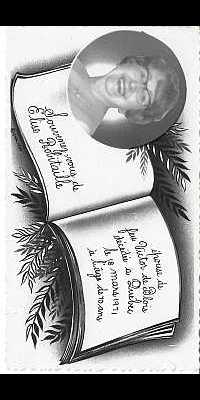 Souvenez-vous de
Elise Robitaille
épouse de
feu Victor de Blois
décédée à Québec
le 18 mars 1971
à l'âge de 70 ans